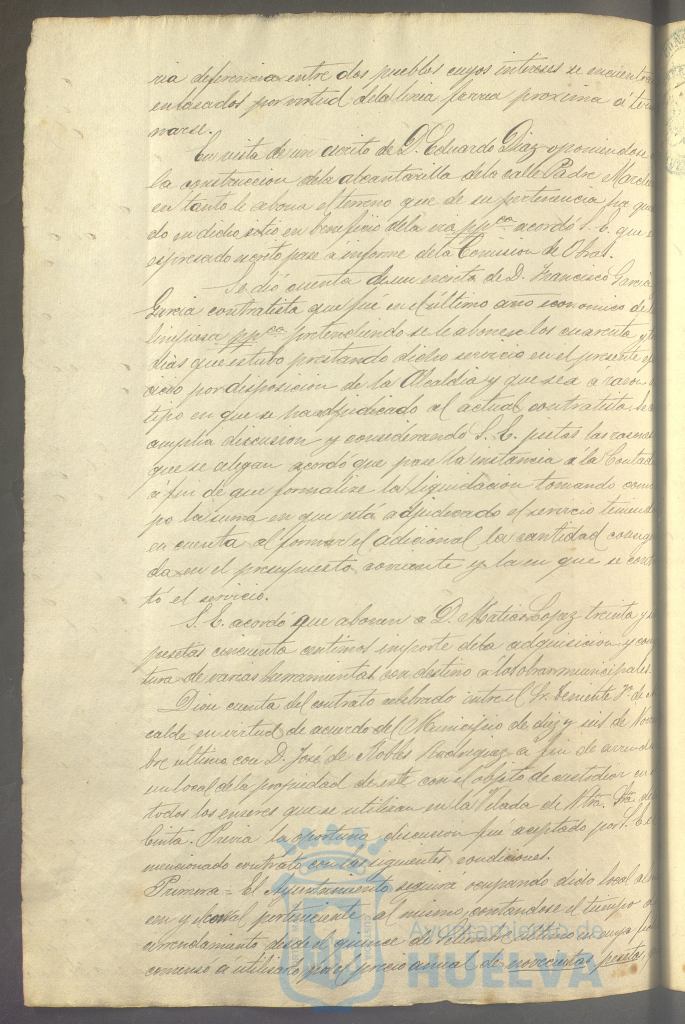 ria deferencia entre dos pueblos cuyos intereses se encuentra
enlasados por virtud de la linea ferrea proxima á ter
narse.
En vista de un escrito de D. Eduardo Diaz oponiendose
la construccion de la alcantarilla de la calle Padre Marche
en tanto le abona el terreno que de su pertenencia ha que
do en dicho sitio en beneficio de la via ppca acordó S. E. que
espresado escrito pase á informe de la Comision de Obras.
Se dió cuenta de un escrito de D. Francisco Garcia
Garcia contratista que fué en el último año economico de
limpiesa ppca pretendiendo se le abonese los cuarenta y
dias que estubo prestando dicho servicio en el presente
cicio por disposicion de la Alcaldia y que sea á razon
tipo en que se ha adjudicado al actual contratista
amplia discusion y considerando S. E. justas las rasones
que se alegan acordó que pase la instancia á la Contad
á fin de que formalize la liquidacion tomando como
po la suma en que está adjudicado el servicio teniendo
en cuenta al formar el adicional la cantidad consigna
da en el presupuesto corriente y la en que se contr
tó el servicio.
S. E. acordó que abonen a D. Matias Lopez treinta y
pesetas cincuenta centimos importe de la adquisicion y com
tura de varias herramientas con destino á las obras municipales.
Diose cuenta del contrato celebrado entre el Sr. Teniente 1º de
calde en virtud de acuerdo del Municipio de diez y seis de Nov
bre último con D. José de Robles Rodriguez a fin de arrenda
un local de la propiedad de este con el objeto de custodiar en
todos los enseres que se utilizan en la Velada de Ntra. Sra. de
Cinta. Previa la oportuna discusion fué aceptado por S. E.
mencionado contrato con las siguientes condiciones.
Primera = El Ayuntamiento seguirá ocupando dicho local
cen y corral perteneciente al mismo, contandose el tiempo
arrendamiento desde el quince de Setiembre último en cuya
comensó a utilizarlo por el precio anual de novecientas pesetas
Ayuntamiento de
HUELVA